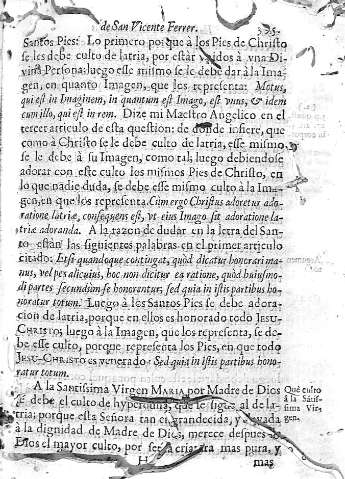 de San Vicente Ferrer. 595
Santos Pies: Lo primero porque à los Pies de Christo
se les debe culto de latria, por estàr vnidos à vna Di-
vina Persona: luego esse mismo se le debe dàr à la Ima-
gen, en quanto Imagen, que les representa: Motus,
qui est in Imaginem, in quantum est Imago, est vnus, & idem
cum illo, qui est in rem. Dize mi Maestro Angelico en el
tercer articulo de esta question: de donde infiere, que
como à Christo se le debe culto de latria, esse mismo
se le debe à su Imagen, como tal; luego debiendose
adorar con este culto los mismos Pies de Christo, en
lo que nadie duda, se debe esse mismo culto à la Ima-
gen, en que los representa. Cum ergo Christus adoretur ado-
ratione latriæ, consequens est, vt eius Imago sit adoratione la-
triæ adoranda. A la razon de dudar en la letra del San-
to estàn las siguientes palabras en el primer articulo
citado: Etsi quandoque contingat, quòd dicatur honorari ma-
nus, vel pes alicuius, hoc non dicitur ea ratione, quòd huiusmo-
di partes secundùm se honorentur, sed quia in istis partibus ho-
noratur totum. Luego à los Santos Pies se debe adora-
cion de latria, porque en ellos es honorado todo JESU-
CHRISTO; luego à la Imagen, que los representa, se de-
be esse culto, porque representa los Pies, en que todo
JESU-CHRISTO es venerado: Sed quia in istis partibus hono-
ratur totum.
A la Santissima Virgen MARIA por Madre de Dios
se debe el culto de hyperdulia, que se sigue al de la-
tria; porque esta Señora tan engrandecida, y elevada
à la dignidad de Madre de Dios, merece despues de
Dios el mayor culto, por ser la criatura mas pura, y
Què culto
à la Sãtis-
sima Vir-
gen.
H
mas